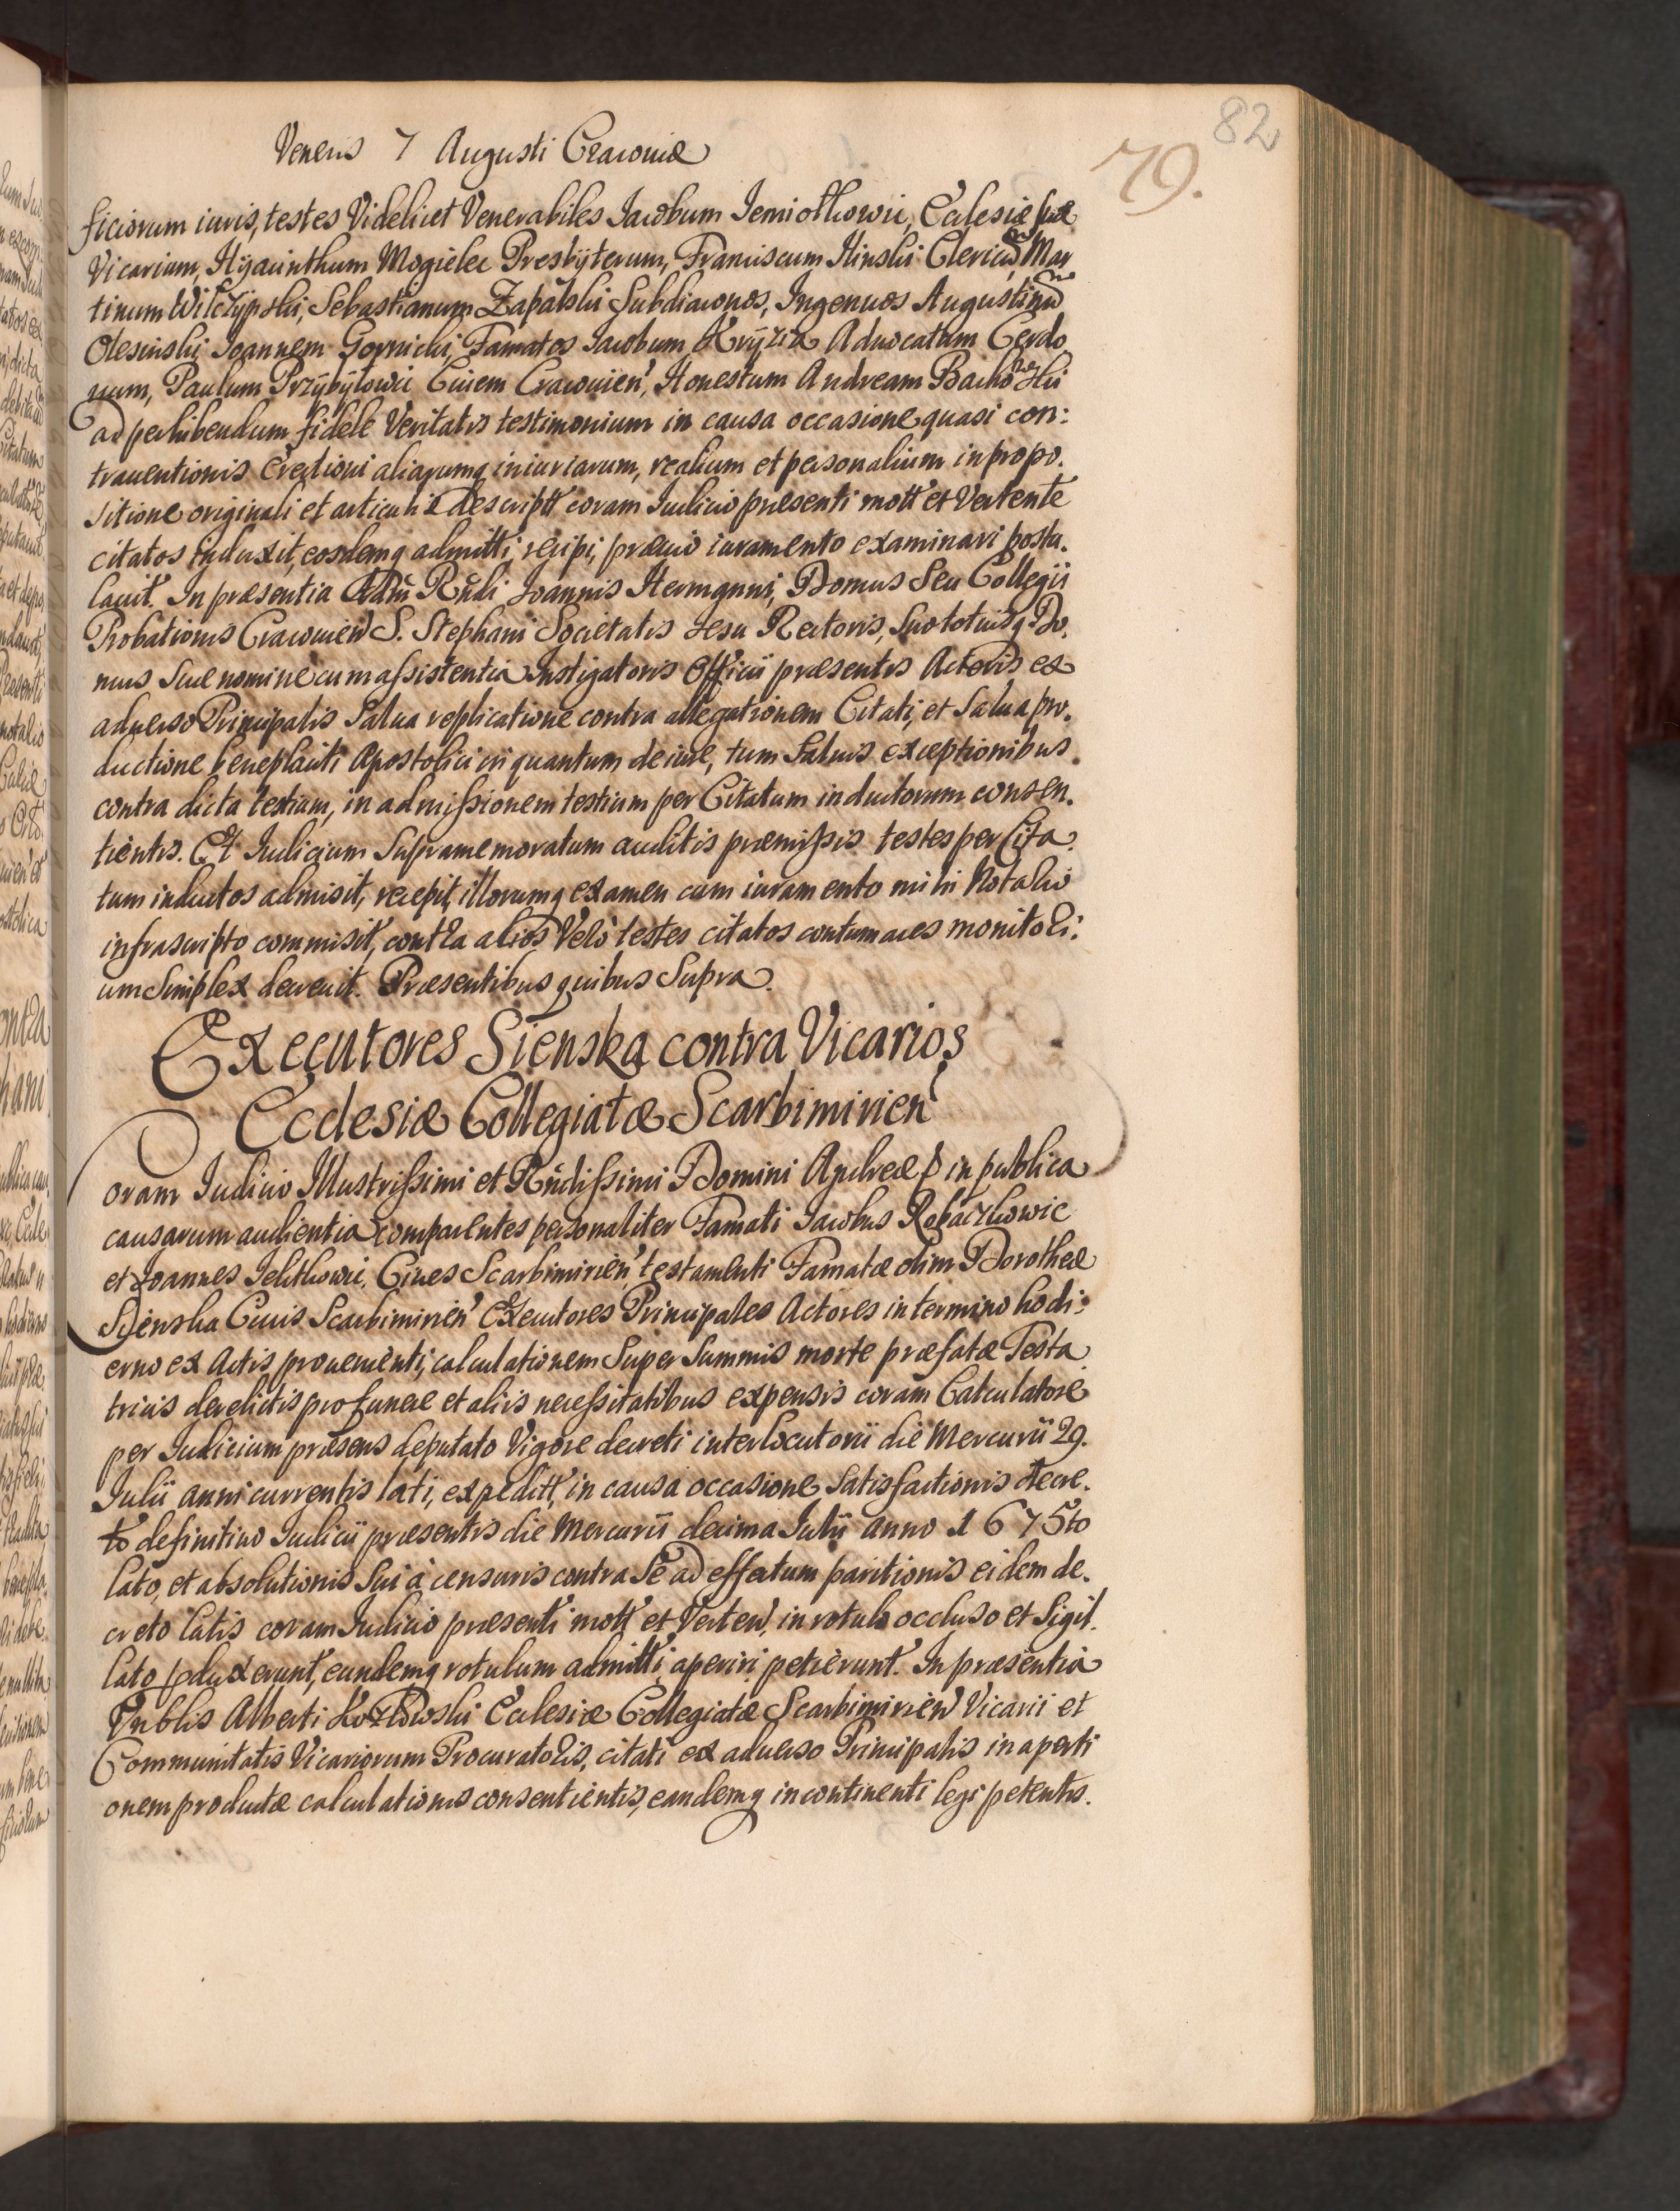 82
79.
Veneris 7 Augusti Cracoviæ
ficiorum iuris, testes Videlicet Venerabiles Iacobum Iemiolkowic, Ecclesiæ suæ
Vicarium, Hÿacinthum Mogielec Presbÿterum, Franciscum Kinski Clericũ, Mar
tinum Wilczÿnski, Sebastianum Zapalski Subdiaconos, Ingenuos Augustinũ
Olesinski, Ioannem Gornicki, Famatos Iacobum Krÿzia Aduocatum Cerdo
num, Paulum Przÿbÿlowic Ciuem Cracouien', Honestum Andream
ad perhibendum fidele Veritatis testimonium in causa occasione quasi con:
trauentionis Erectioni aliarumq iniuriarum, realium et personalium in propo.
sitione originali et articulis descriptt coram Iudicio præsenti mott et Vertente
citatos induxit, eosdemq admitti, recipi, præuio iuramento examinari postu.
lauit. In præsentia Adm Rndi Ioannis Hermanni, Domus Seu Collegii
Probationis Cracouien' S. Stephani Societatis Iesu Rectoris, Suo totiusq Do.
mus Suæ nomine cum assistentia Instigatoris Officii præsentis Actoris ex
aduerso Principalis Salua replicatione contra allegationem Citati, et Salua pro.
ductione beneplaciti Apostolici in quantum de iure, tum Saluis exceptionibus
contra dicta testium, in admissionem testium per Citatum inductorum consen.
tientis. Et Iudicium Supramemoratum auditis præmissis testes per Cita
tum inductos admisit, recepit, illorumq examen cum iuramento mihi Notario
infrascripto commisit, contra alios Vero testes citatos contumaces monitori:
um Simplex decreuit. Præsentibus quibus Supra.
Executores Sienska contra Vicarios
Ecclesiæ Collegiatæ Scarbimirien'
Coram Iudicio Illustrissimi et Rndissimi Domini Andreæ p in publica
causarum audientia comparentes personaliter Famati Iacobus Robaczkowic
et Ioannes Ielitkowic, Ciues Scarbimirien' testamenti Famatæ olim Dorotheæ
Sienska Ciuis Scarbimirien' Executores Principales Actores in termino hodi:
erno ex Actis prouenienti, calculationem Super Summis morte præfatæ Testa
tricis derelictis pro funere et aliis necessitatibus expensis coram Calculatore
per Iudicium præsens deputato Vigore decreti interlocutorii die Mercurii 29.
Iulii anni currentis lati, expeditt, in causa occasione Satisfactionis decre.
to definitiuo Iudicii præsentis die Mercurii decima Iulii anno 1675to
lato, et absolutionis Sui à censuris contra Se ad effectum paritionis eidem de.
creto latis coram Iudicio præsenti mott et Verten', in rotulo occluso et Sigil.
lato produxerunt, eundemq rotulum admitti, aperiri petierunt. In præsentia
Vnblis Alberti Kozlowski Ecclesiæ Collegiatæ Scarbimirien' Vicarii et
Communitatis Vicariorum Procuratoris, citati ex aduerso Principalis in aperti
onem productæ calculationis consentientis, eandemq in continenti legi petentis.